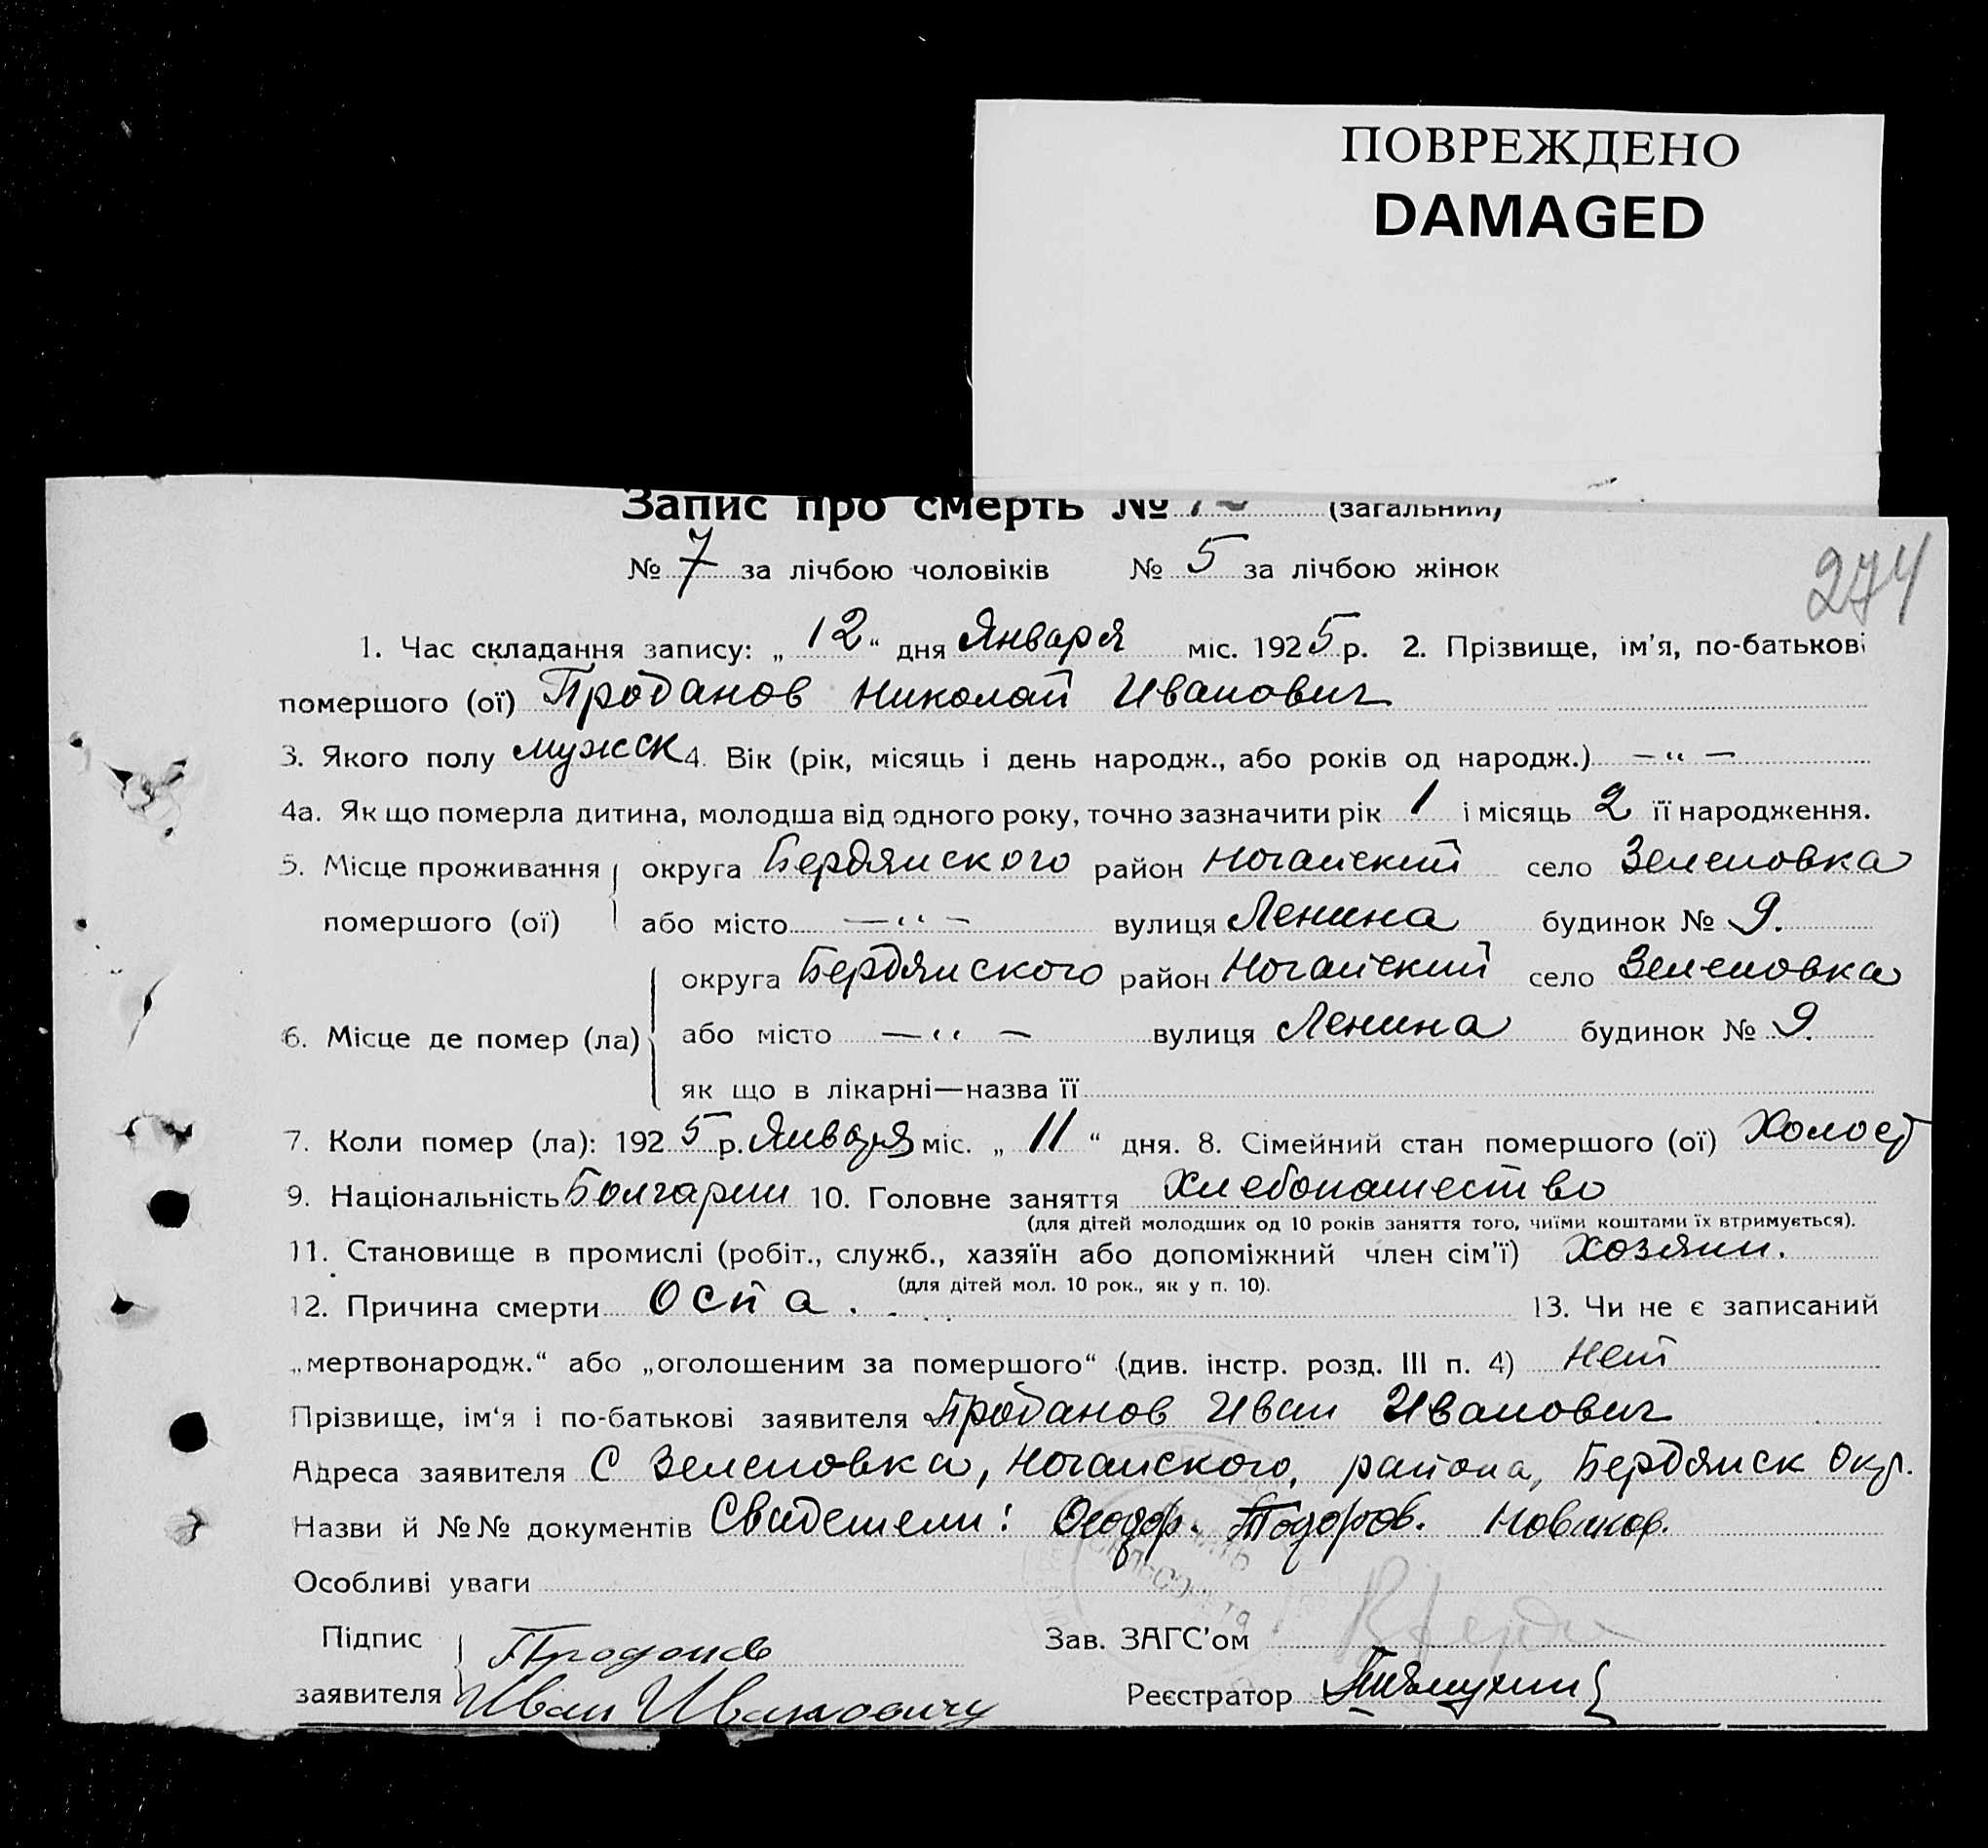 ПОВРЕЖДЕНО
DAMAGED
Запис про смерть № (загальний)
№ 7 за лічбою чоловіків № 5 за лічбою жінок
274
1. Час складання запису: „ 12 “ дня Января міс. 1925 р. 2. Прізвище, ім'я, по-батькові
помершого (ої) Проданов Николай Иванович
3. Якого полу мужск 4. Вік (рік, місяць і день народж., або років од народж.) — “ —
4а. Як що померла дитина, молодша від одного року, точно зазначити рік 1 і місяць 2 її народження.
5. Місце проживання округа Бердянского район Ногайский село Зеленовка
помершого (ої) або місто — “ — вулиця Ленина будинок № 9.
округа Бердянского район Ногайский село Зеленовка
6. Місце де помер (ла) або місто — “ — вулиця Ленина будинок № 9.
як що в лікарні—назва її
7. Коли помер (ла): 1925 р. Января міс. „ 11 “ дня. 8. Сімейний стан помершого (ої) Холост
9. Національність Болгарин 10. Головне заняття Хлебопашество
(для дітей молодших од 10 років заняття того, чиїми коштами їх втримується).
11. Становище в промислі (робіт., служб., хазяїн або допоміжний член сім'ї) Хозяин.
(для дітей мол. 10 рок., як у п. 10).
12. Причина смерти Оспа. 13. Чи не є записаний
„мертвонародж.“ або „оголошеним за помершого“ (див. інстр. розд. III п. 4) Нет
Прізвище, ім‘я і по-батькові заявителя Проданов Иван Иванович
Адреса заявителя С Зеленовка, Ногайского, района, Бердянск Окр.
Назви й №№ документів Свидетели: Феодор. Тодоров. Новаков.
Особливі уваги
Підпис Проданов Зав. ЗАГС'ом
заявителя Иван Иванович Реєстратор